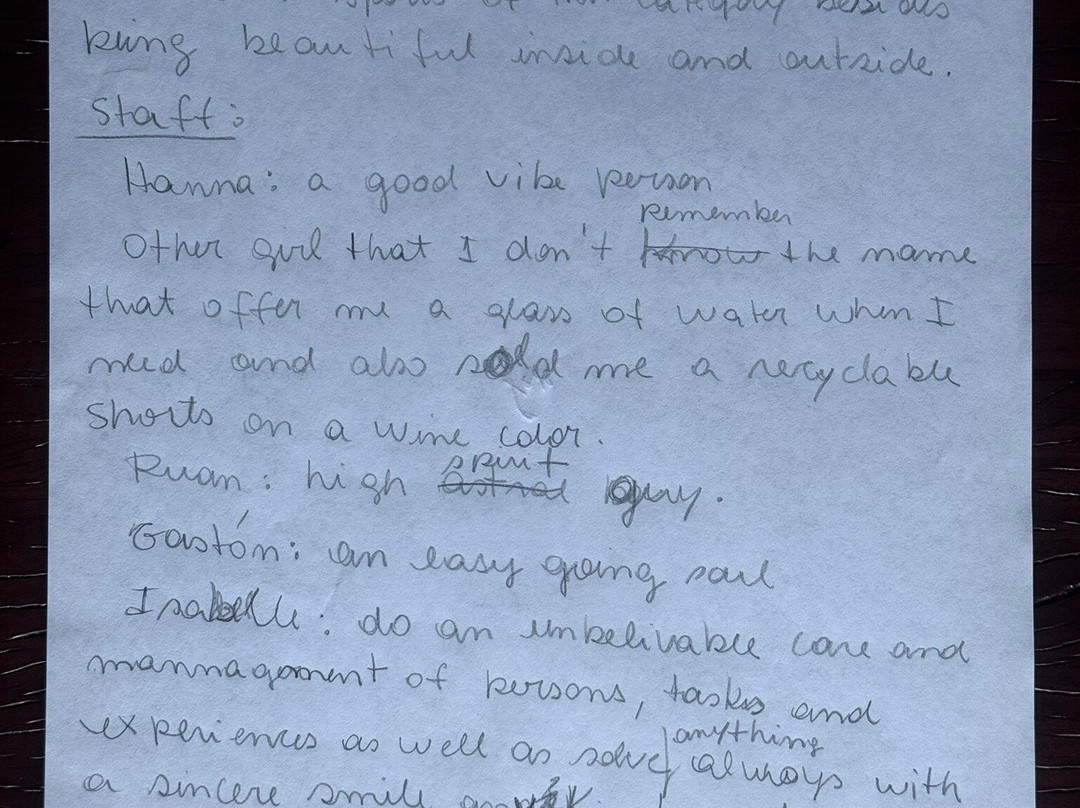 of this category besides
being beautiful inside and outside.
Staff:
Hanna: a good vibe person
remember
Other girl that I don't know the name
that offer me a glass of water when I
need and also sold me a recyclable
shorts on a wine color.
spirit
Ruan: high astral guy.
Gastón: an easy going soul
Isabelle: do an unbelivable care and
mannagement of persons, tasks and
anything
experiences as well as solve always with
a sincere smile